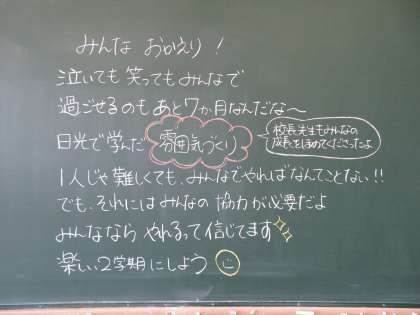 みんな おかえり!
泣いても笑ってもみんなで
過ごせるのもあと7か月なんだな〜
日光で学んだ 雰囲気づくり
校長先生もみんなの
成長をほめてくださったよ
1人じゃ難しくても、みんなでやればなんてことない!!
でも、それにはみんなの協力が必要だよ
みんななら やれるって信じてます
楽しい2学期にしよう